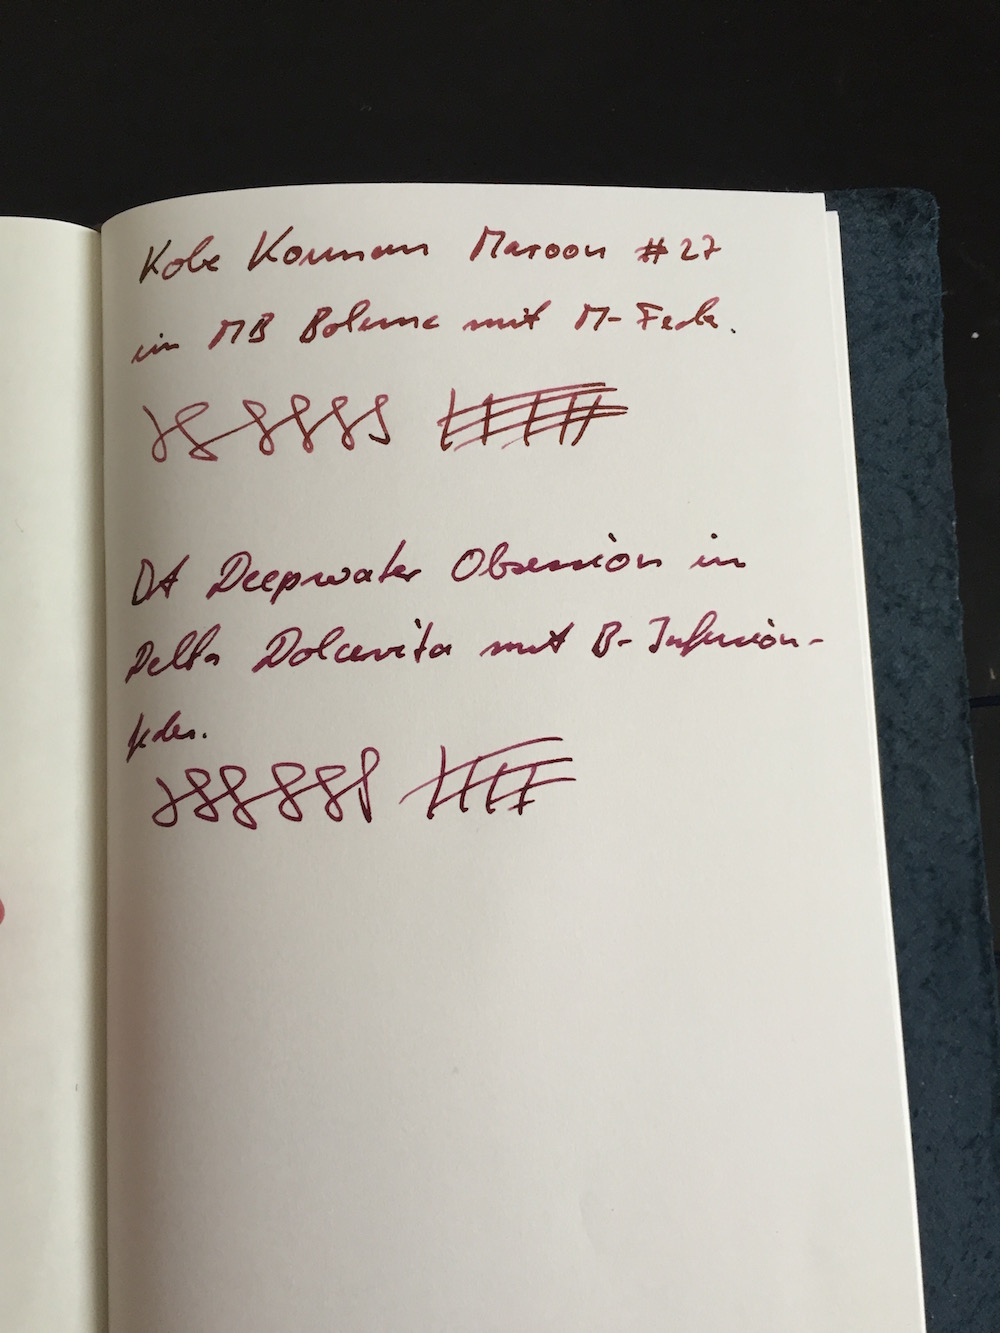 Kobe Kounan Maroon #27
in MB Boheme mit M-Feder.
DA Deepwater Obsession in
Delta Dolcevita mit B-Infusion-
feder.